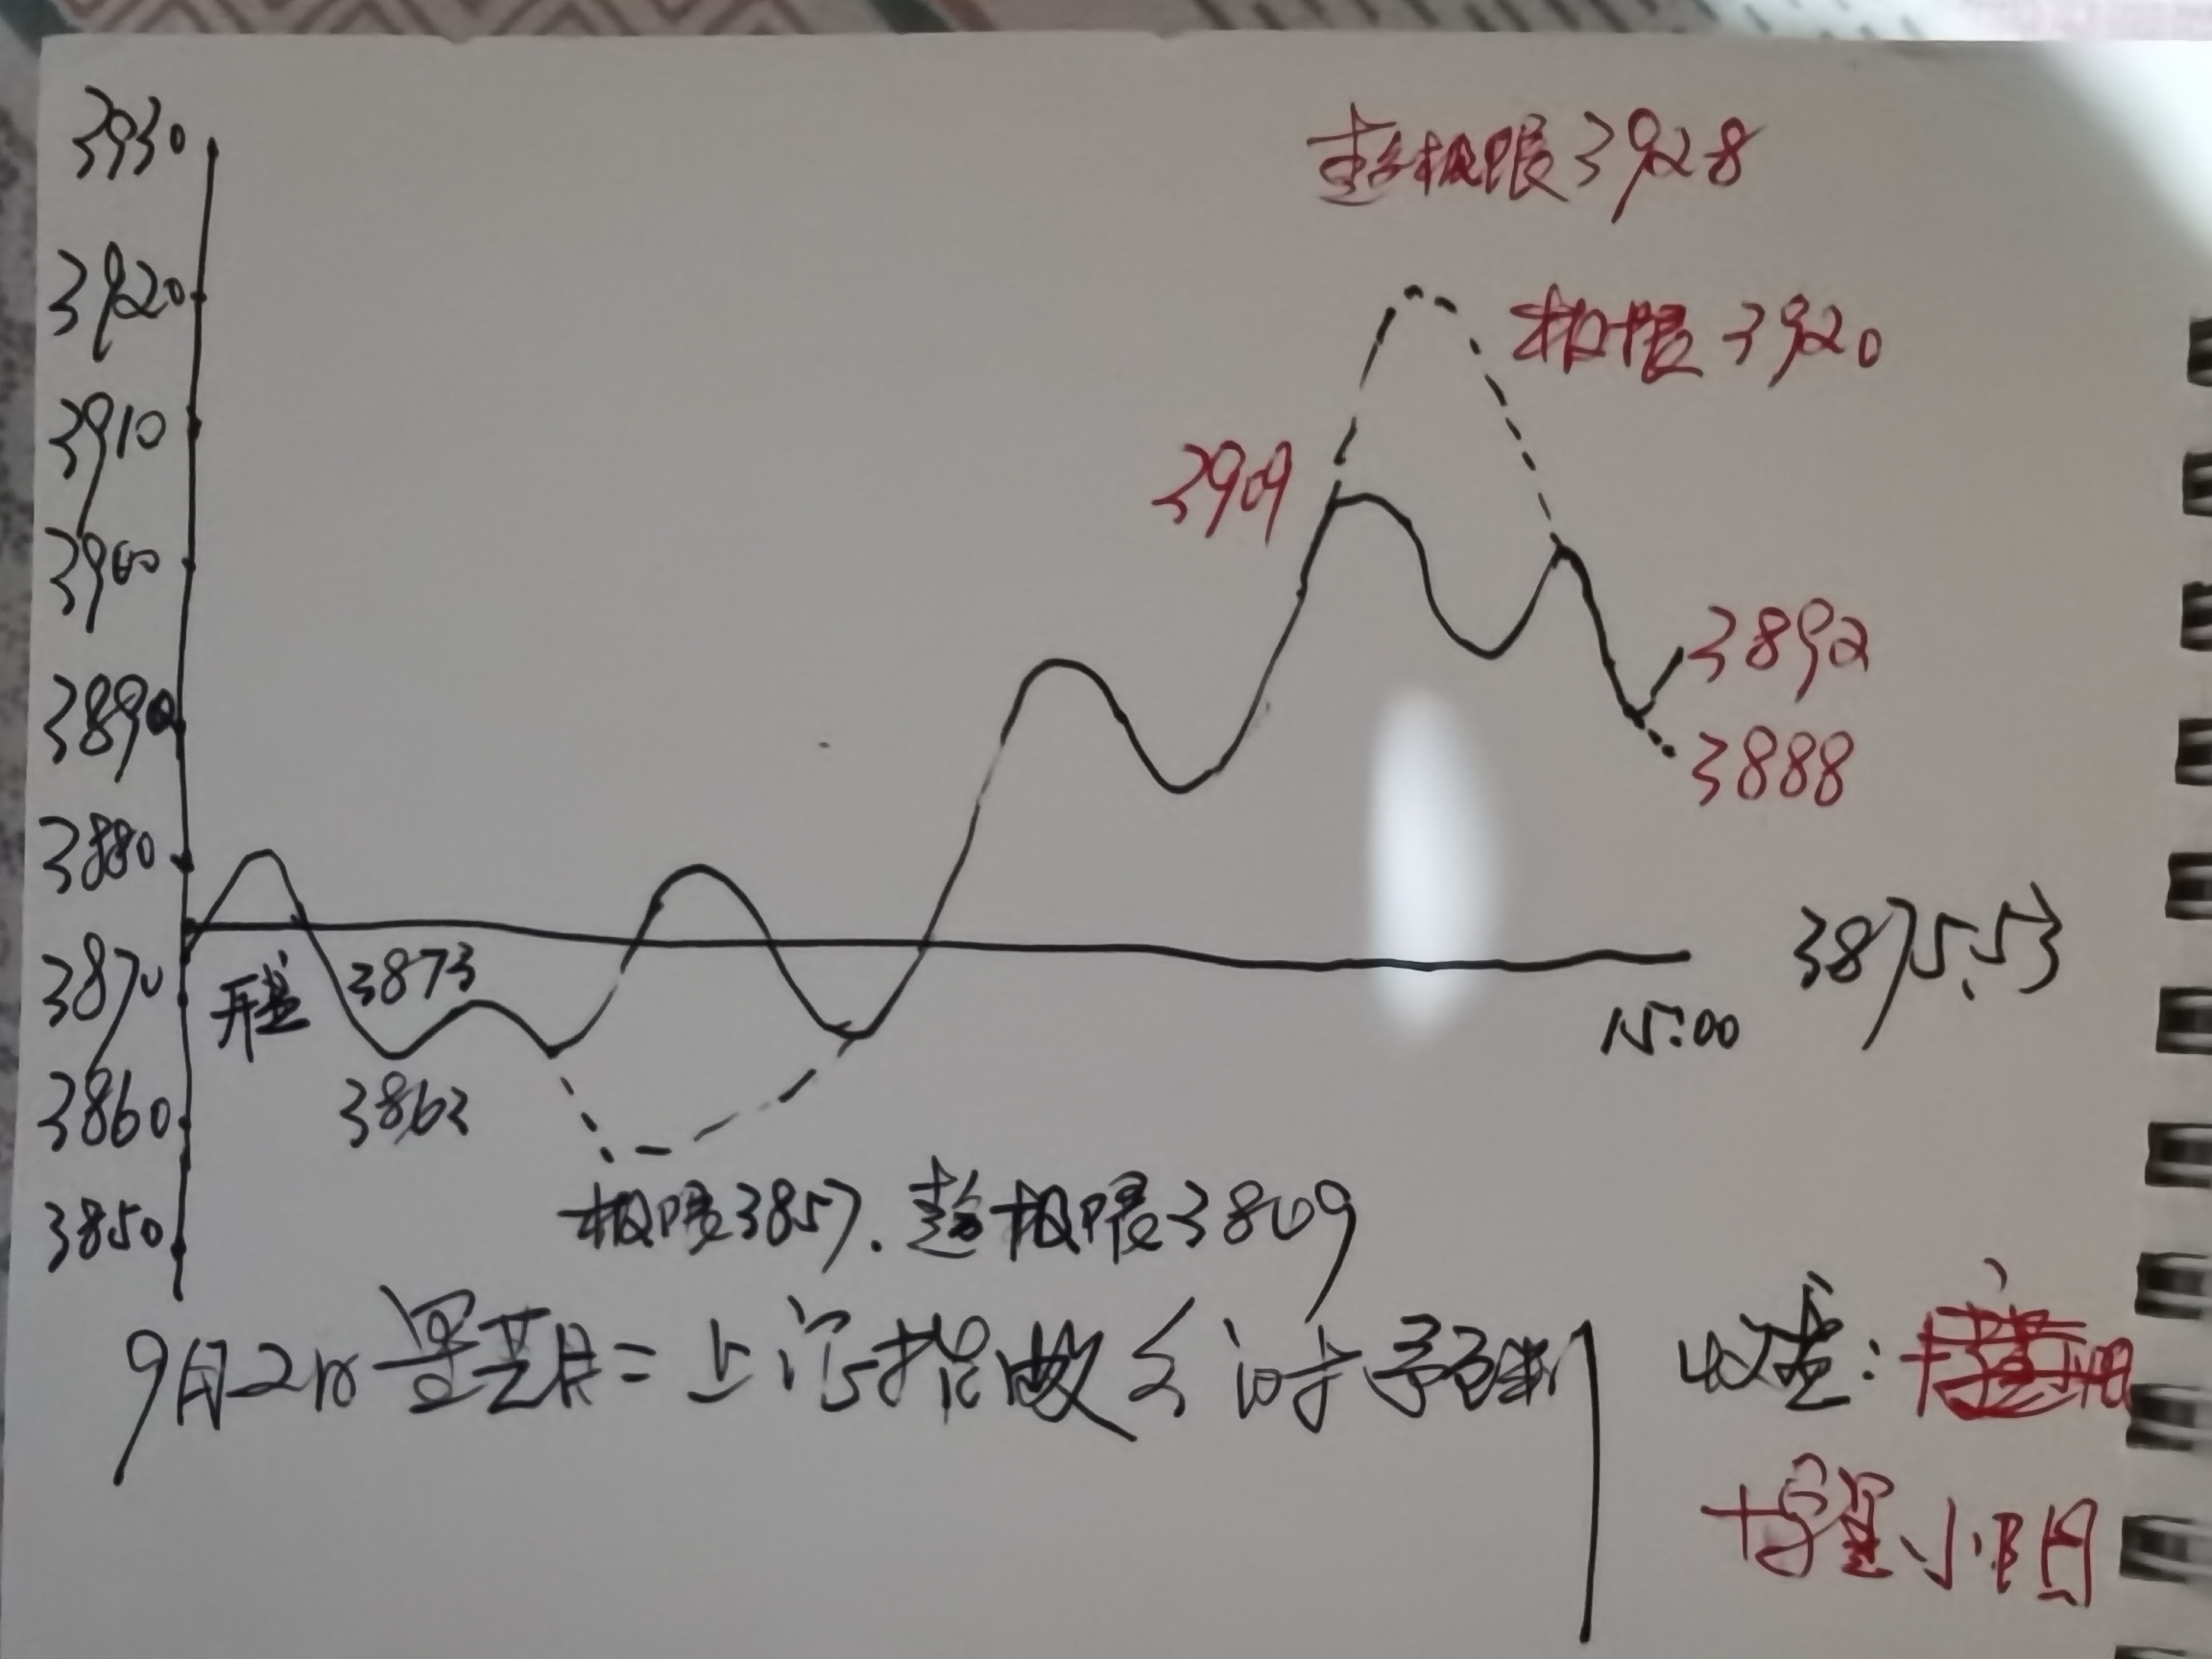 3930
超极限3928
3920
极限3920
3910
3909
3900
3892
3890
3888
3880
3875.53
3873
开盘
3870
15:00
3863
3860
极限3857.超极限3809
3850
9月2日星期二上证指数分时予测
收盘:
十字星小阳